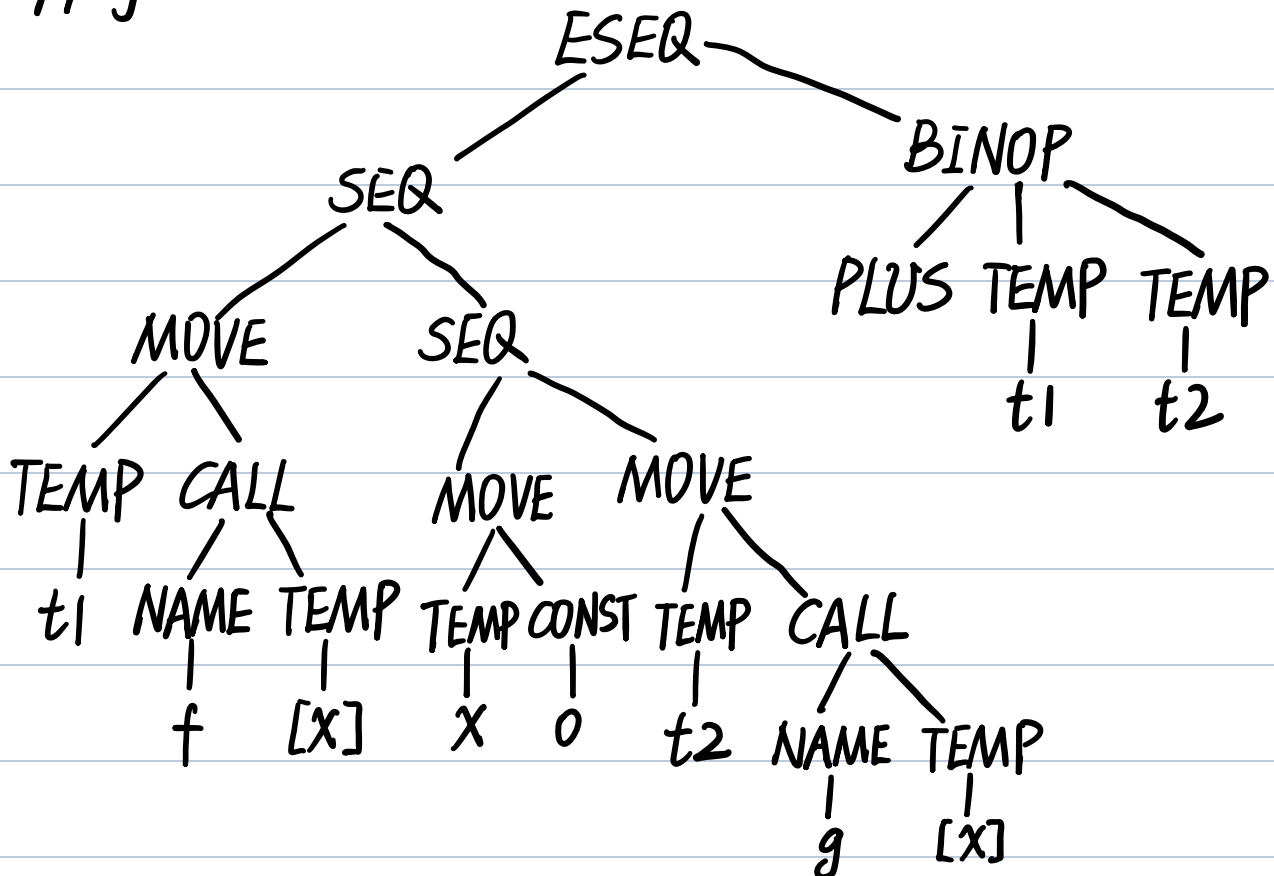 ESEQ
BINOP
SEQ
PLUS TEMP TEMP
MOVE SEQ
t1 t2
TEMP CALL MOVE MOVE
t1 NAME TEMP TEMP CONST TEMP CALL
f [X] X 0 t2 NAME TEMP
g [X]